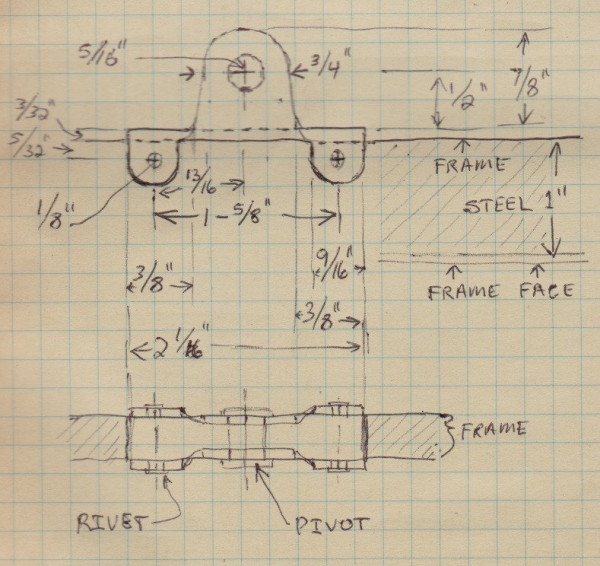 5/16"
3/4"
7/8"
1/2"
3/32"
5/32"
FRAME
13/16
STEEL 1"
1/8"
1-5/8"
9/16"
3/8"
FRAME FACE
3/8"
2 1/16"
FRAME
RIVET
PIVOT